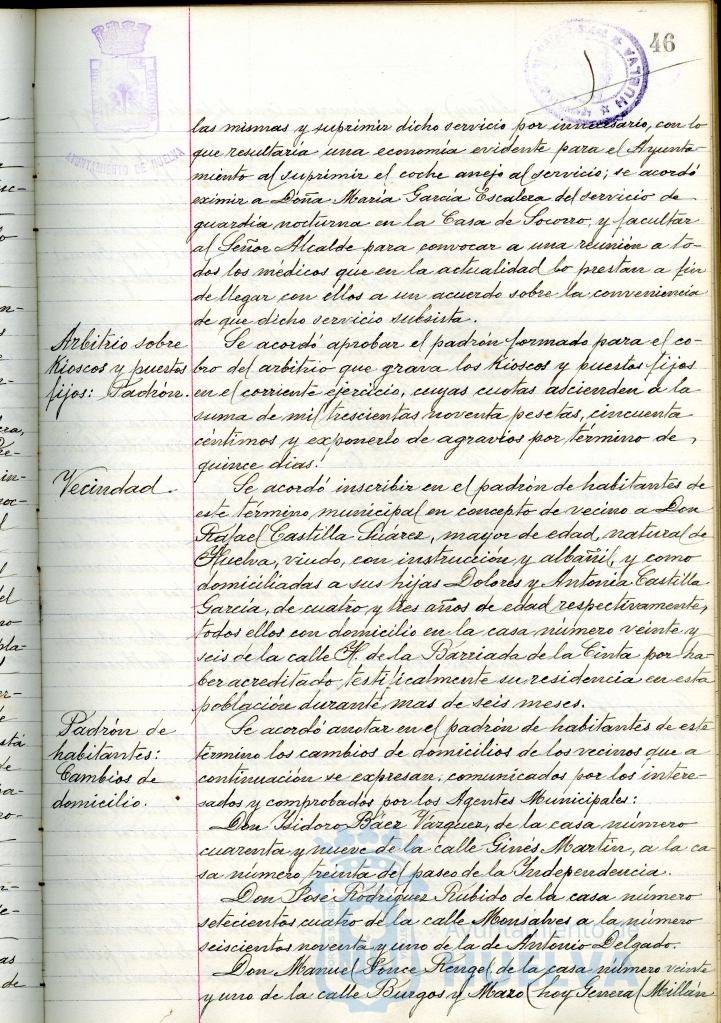 46
AYUNTAMIENTO DE HUELVA
HUELVA
las mismas y suprimir dicho servicio por innecesario, con lo
que resultaría una economía evidente para el Ayunta-
miento al suprimir el coche anejo al servicio; se acordó
eximir a Doña María García Escalera del servicio de
guardia nocturna en la Casa de Socorro, y facultar
al Señor Alcalde para convocar a una reunión a to-
dos los médicos que en la actualidad lo prestan a fin
de llegar con ellos a un acuerdo sobre la conveniencia
de que dicho servicio subsista.
Arbitrio sobre
Kioscos y puestos
fijos: Padrón.
Se acordó aprobar el padrón formado para el co-
bro del arbitrio que grava los Kioscos y puestos fijos
en el corriente ejercicio, cuyas cuotas ascienden a la
suma de mil trescientas noventa pesetas, cincuenta
céntimos y exponerlo de agravios por término de
quince días.
Vecindad.
Se acordó inscribir en el padrón de habitantes de
este término municipal en concepto de vecino a Don
Rafael Castilla Suárez, mayor de edad, natural de
Huelva, viudo, con instrucción y albañil, y como
domiciliadas a sus hijas Dolores y Antonia Castilla
García, de cuatro y tres años de edad respectivamente,
todos ellos con domicilio en la casa número veinte y
seis de la calle H. de la Barriada de la Cinta por ha-
ber acreditado testificalmente su residencia en esta
población durante mas de seis meses.
Padrón de
habitantes:
Cambios de
domicilio.
Se acordó anotar en el padrón de habitantes de este
término los cambios de domicilios de los vecinos que a
continuación se expresan, comunicados por los intere-
sados y comprobados por los Agentes Municipales:
Don Isidoro Báez Vázquez, de la casa número
cuarenta y nueve de la calle Ginés Martín, a la ca-
sa número treinta del paseo de la Independencia.
Don José Rodríguez Rubido de la casa número
setecientos cuatro de la calle Monsalves a la número
seiscientos noventa y uno de la de Antonio Delgado.
Don Manuel Ponce Rengel de la casa número veinte
y uno de la calle Burgos y Mazo (hoy General Millán
Ayuntamiento de
HUELVA